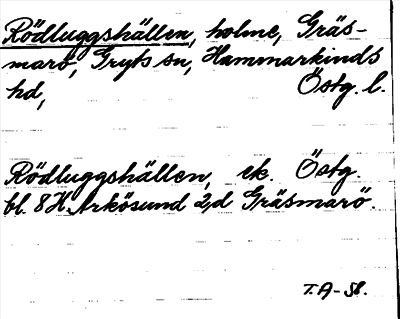 Rödluggshällen, holme, Gräs-
marö, Gryts sn, Hammarkinds
hd, Östg. l.
Rödluggshällen, ek. Östg.
bl. 8H Arkösund 2d Gräsmarö.
T.A-58.